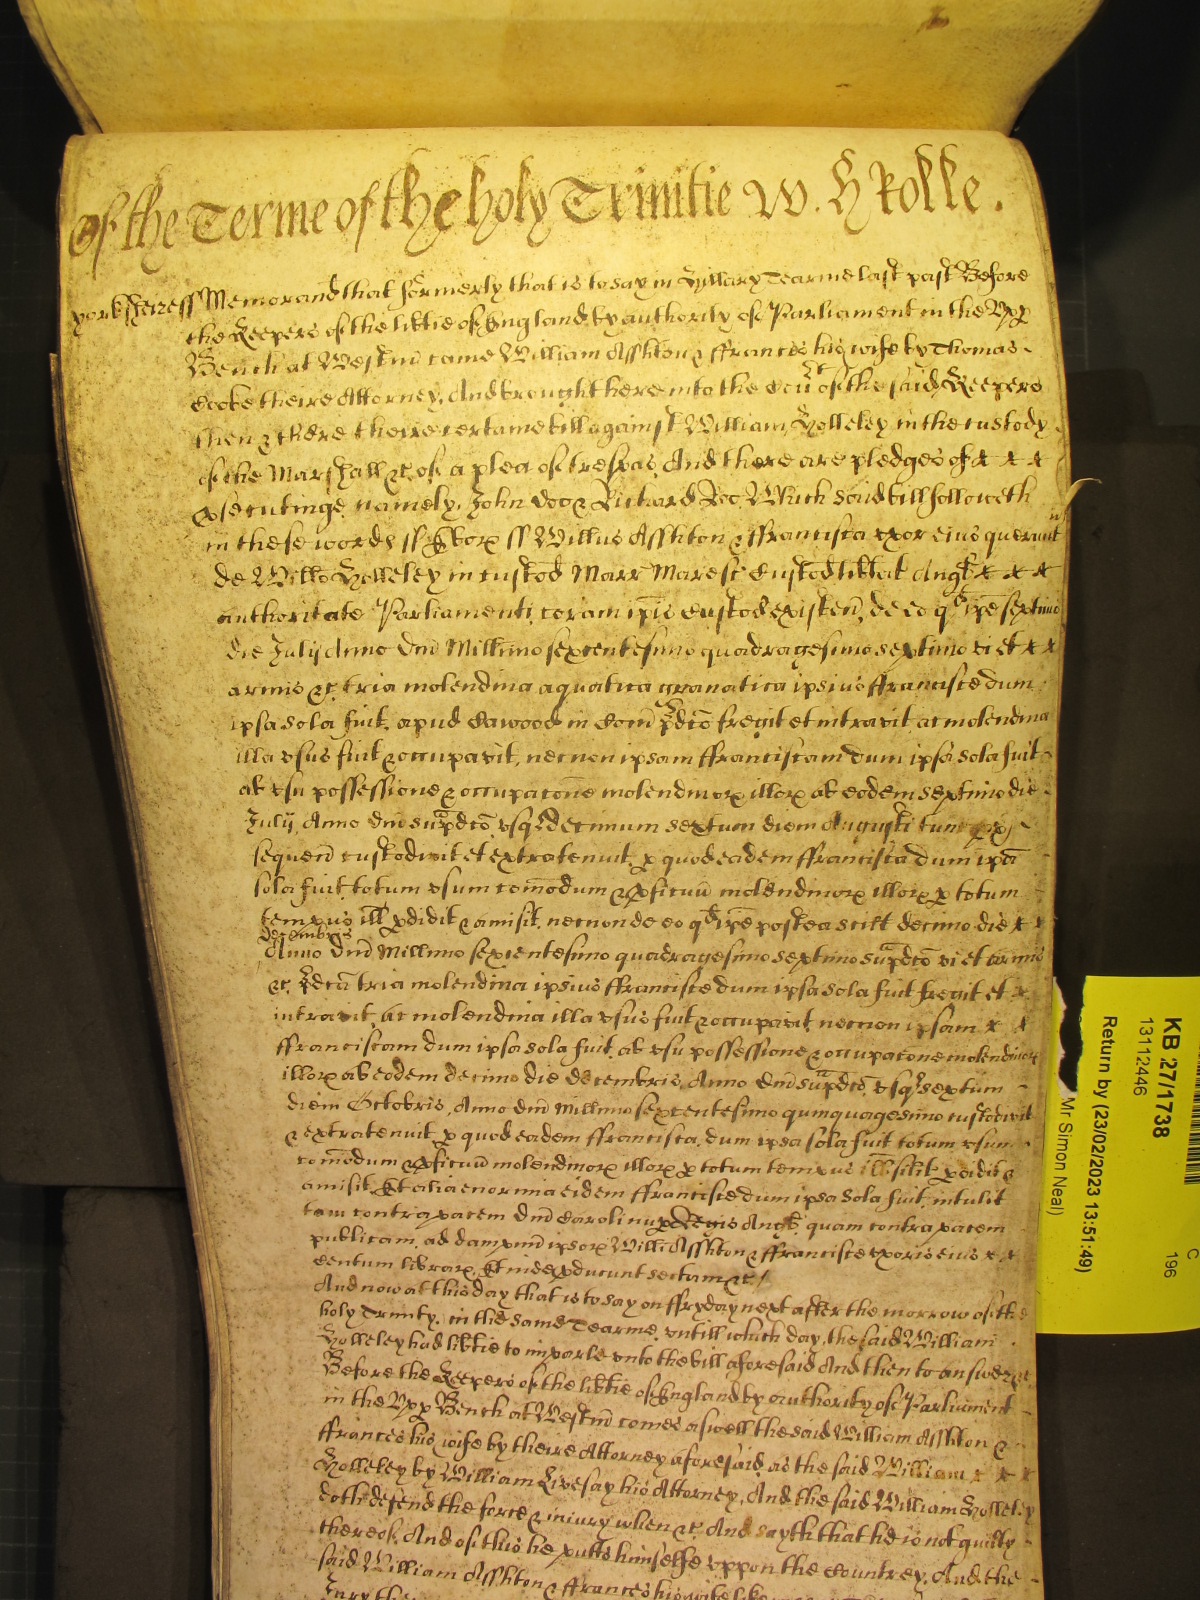 Of the Terme of the holy Trinitie W. H Rolle.
Yorksheire ss Memorand that formerly that is to say in Hyllary Tearme last past Before
the Keepers of the libtie of England by authority of Parliament in the Upp
Bench at Westm came William Asshton & ffrances his wife by Thomas
Cooke theire Attorney, And brought here into the Court of the said Keepers
then & there theire certaine bill against William Holleley in the custody
of the Marshall &c of a plea of trespas, And there are pledges of
psecutinge, namely, John Doo & Richard Roo, Which said bill followeth
in these words ss Ebor ss Willus Asshton & ffrancisca uxor eius querunt
de Willo Holleley in custod Marr Maresc Custod libtat Angt
authoritate Parliamenti, coram ipis Custod existen, de eo qd ipe septimo
die Julij Anno Dni Millimo sexcentesimo quadragesimo septimo vi et
armis &c tria molendina aquatica granatica ipsius ffrancisce dum
ipsa sola fuit, apud Cawood in Com pdco fregit et intravit ac molendina
illa usus fuit & occupavit, necnon ipsam ffranciscam dum ipsa sola fuit
ab usu possessione & occupacone molendinor illor ab eodem septimo die
Julij, Anno Dni supdco usq decimum sextum diem Augusti tunc px
sequen custodivit et extratenuit, p quod eadem ffrancisca dum ipa
sola fuit totum usum comodum & pficuu molendinor illor p totum
tempus ill pdidit & amisit, necnon de eo qd ipe postea scilt decimo die
Decembris
Anno Dni Millimo sexcentesimo quadragesimo septimo supdco vi et armis
&c pdcu tria molendina ipsius ffrancisce dum ipsa sola fuit fregit et
intravit, ac molendina illa usus fuit & occupavit necnon ipsam
ffranciscam dum ipsa sola fuit, ab usu possessione & occupacone molendinor
illor ab eodem decimo die Decembris, Anno Dni supdco, usq sextum
diem Octobris, Anno Dni Millimo sexcentesimo quinquagesimo custodivit
& extratenuit, p quod eadem ffrancisca, dum ipsa sola fuit totum usum
comodum & pficuu molendinor illor p totum tempus ill similit pdidit &
amisit, Et alia enormia eidem ffrancisce dum ipsa sola fuit, intulit
tam contra pacem Dni Caroli nup Regis Angt, quam contra pacem
publicam, ad dampnu ipsor Willi Asshton & ffrancisce uxoris eius
Centum librar, Et inde pducunt sectam &c /
And now at this day that is to say on ffryday next after the morrow of the
holy Trinity, in the same Tearme, untill which day, the said William
Holleley had libtie to imparle unto the bill aforesaid And then to answer &c
Before the Keepers of the libtie of England by authority of Parliament
in the Upp Bench at Westm comes aswell the said William Asshton &
ffrances his wife by theire Attorney aforesaid, as the said William
Holleley by William Livesay his Attorney, And the said William Holleley
doth defend the force & iniury when &c And sayth that he is not guilty
thereof, And of this he putts himselfe uppon the Countrey, And the
said William Asshton & ffrances his wife like
Jury the
KB 27/1738
13112446
Return by (23/02/2023 13:51:49)
Mr Simon Neal)
C
196